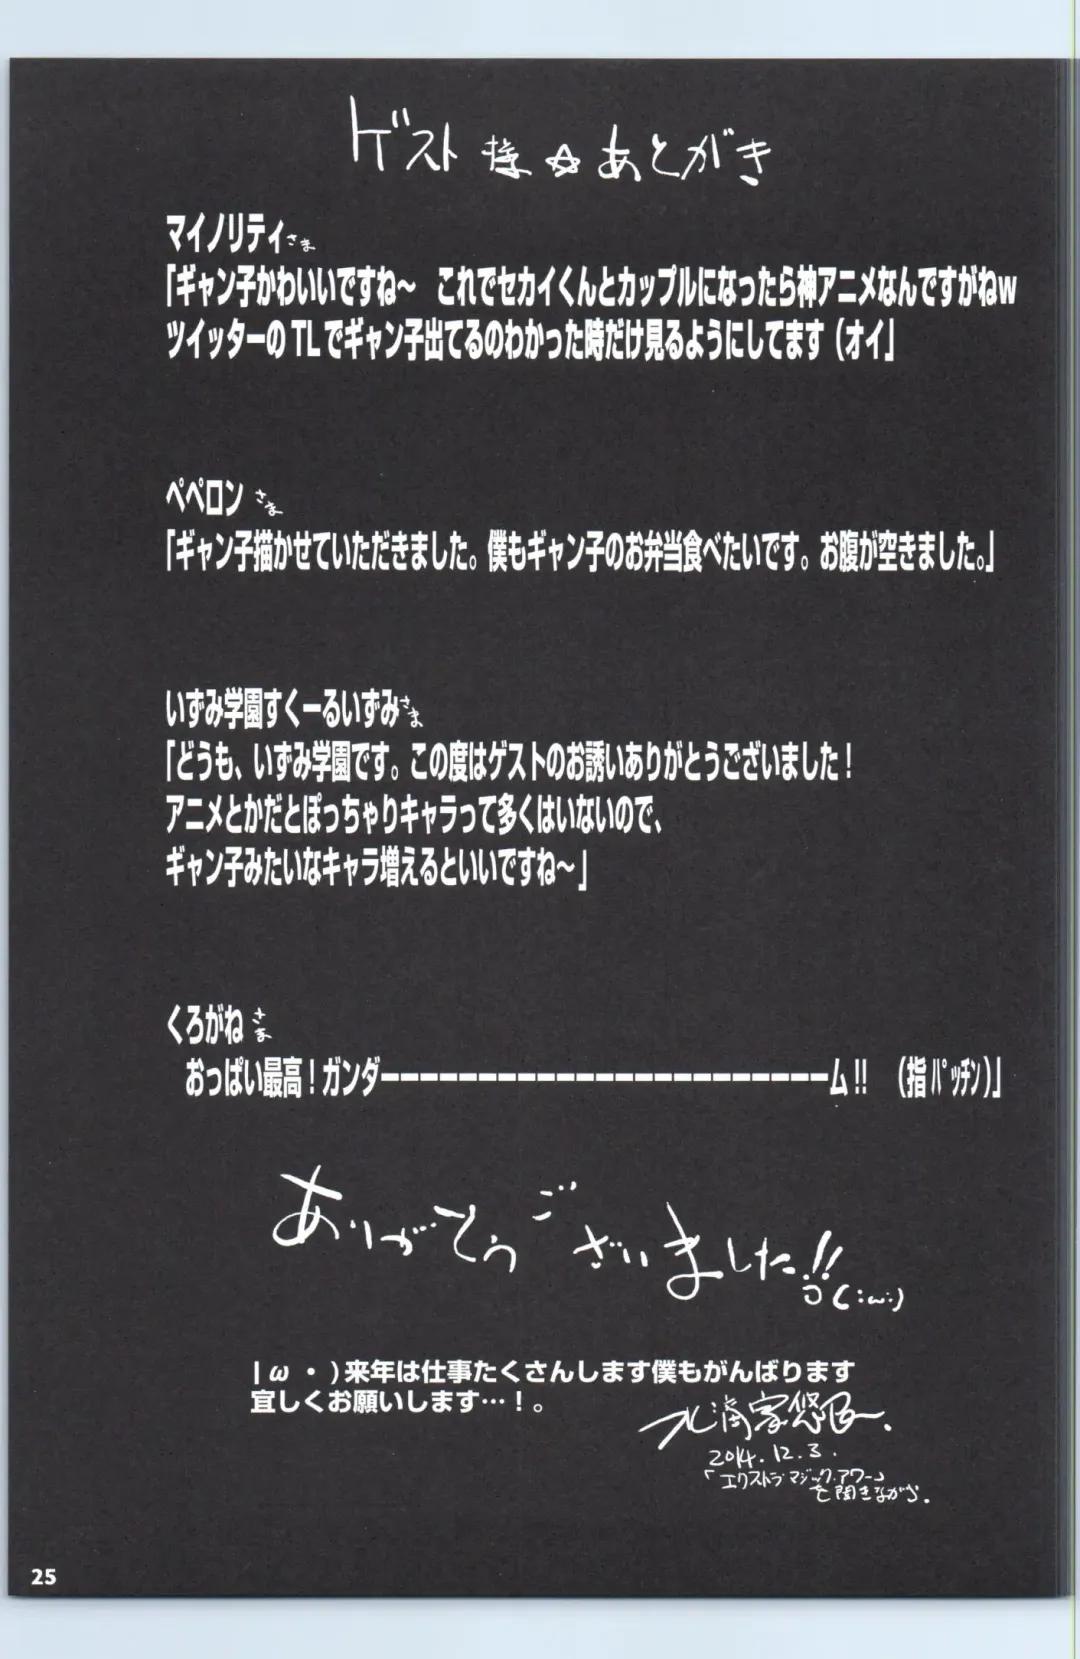 ゲスト様☆あとがき
マイノリティさま
「ギャン子かわいいですね～ これでセカイくんとカップルになったら神アニメなんですがねw
ツイッターのTLでギャン子出てるのわかった時だけ見るようにしてます（オイ」
ペペロンさま
「ギャン子描かせていただきました。僕もギャン子のお弁当食べたいです。お腹が空きました。」
いずみ学園すくーるいずみさま
「どうも、いずみ学園です。この度はゲストのお誘いありがとうございました！
アニメとかだとぽっちゃりキャラって多くはいないので、
ギャン子みたいなキャラ増えるといいですね～」
くろがねさま
おっぱい最高！ガンダーーーーーーーーーーーーーーーーーーーーーーーム!! （指ﾊﾟｯﾁﾝ）」
ありがてうございました!!
⊃(:ω:)
|ω・)来年は仕事たくさんします僕もがんばります
宜しくお願いします…！。
2014.12.3.
「エクストラ・マジック・アワー」
を聞きながら.
25